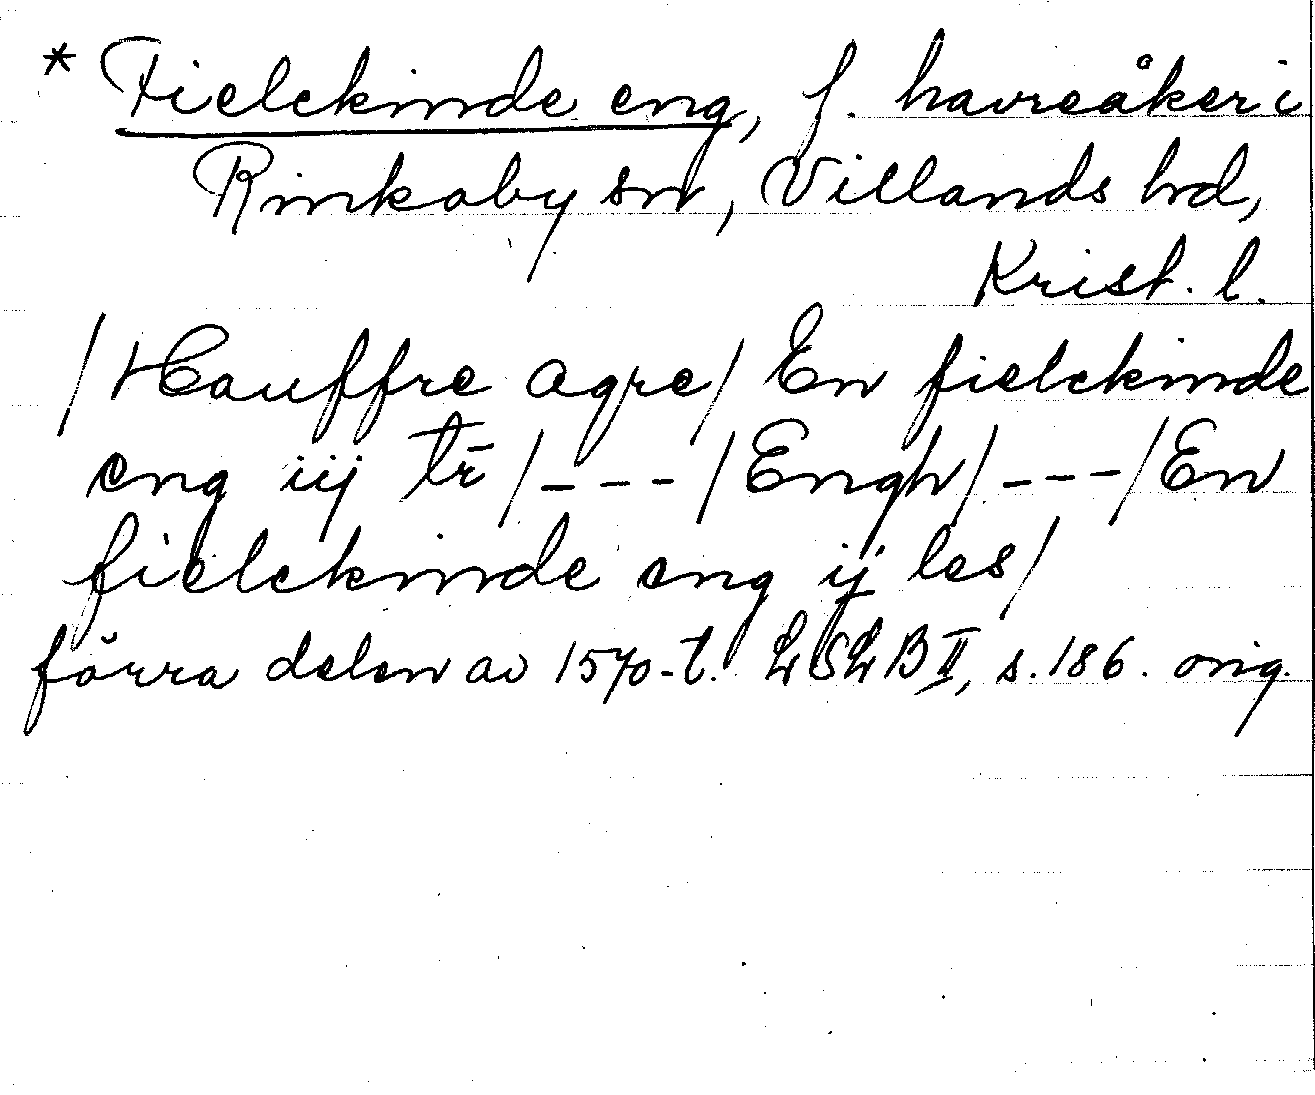 * Fielckinde eng, f. havreåker i
Rinkaby sn, Villands hd,
Krist. l.
/Hauffre agre/ En fielckinde
eng iij tr̄ /---/Engh/---/En
fielckinde eng ij les/
förra delen av 1570-t. LSLB II, s. 186. orig.